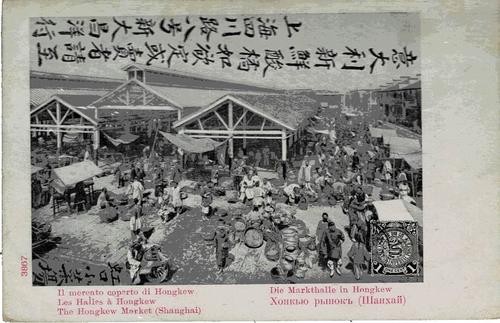 意大利新鮮酸橘如欲定或賣者請至
上海四川路八号新大昌洋行
虹口小菜場
3867
Il mercato coperto di Hongkew
Les Halles à Hongkew
The Hongkew Market (Shanghai)
Die Markthalle in Hongkew
Хонкью рынокъ (Шанхай)